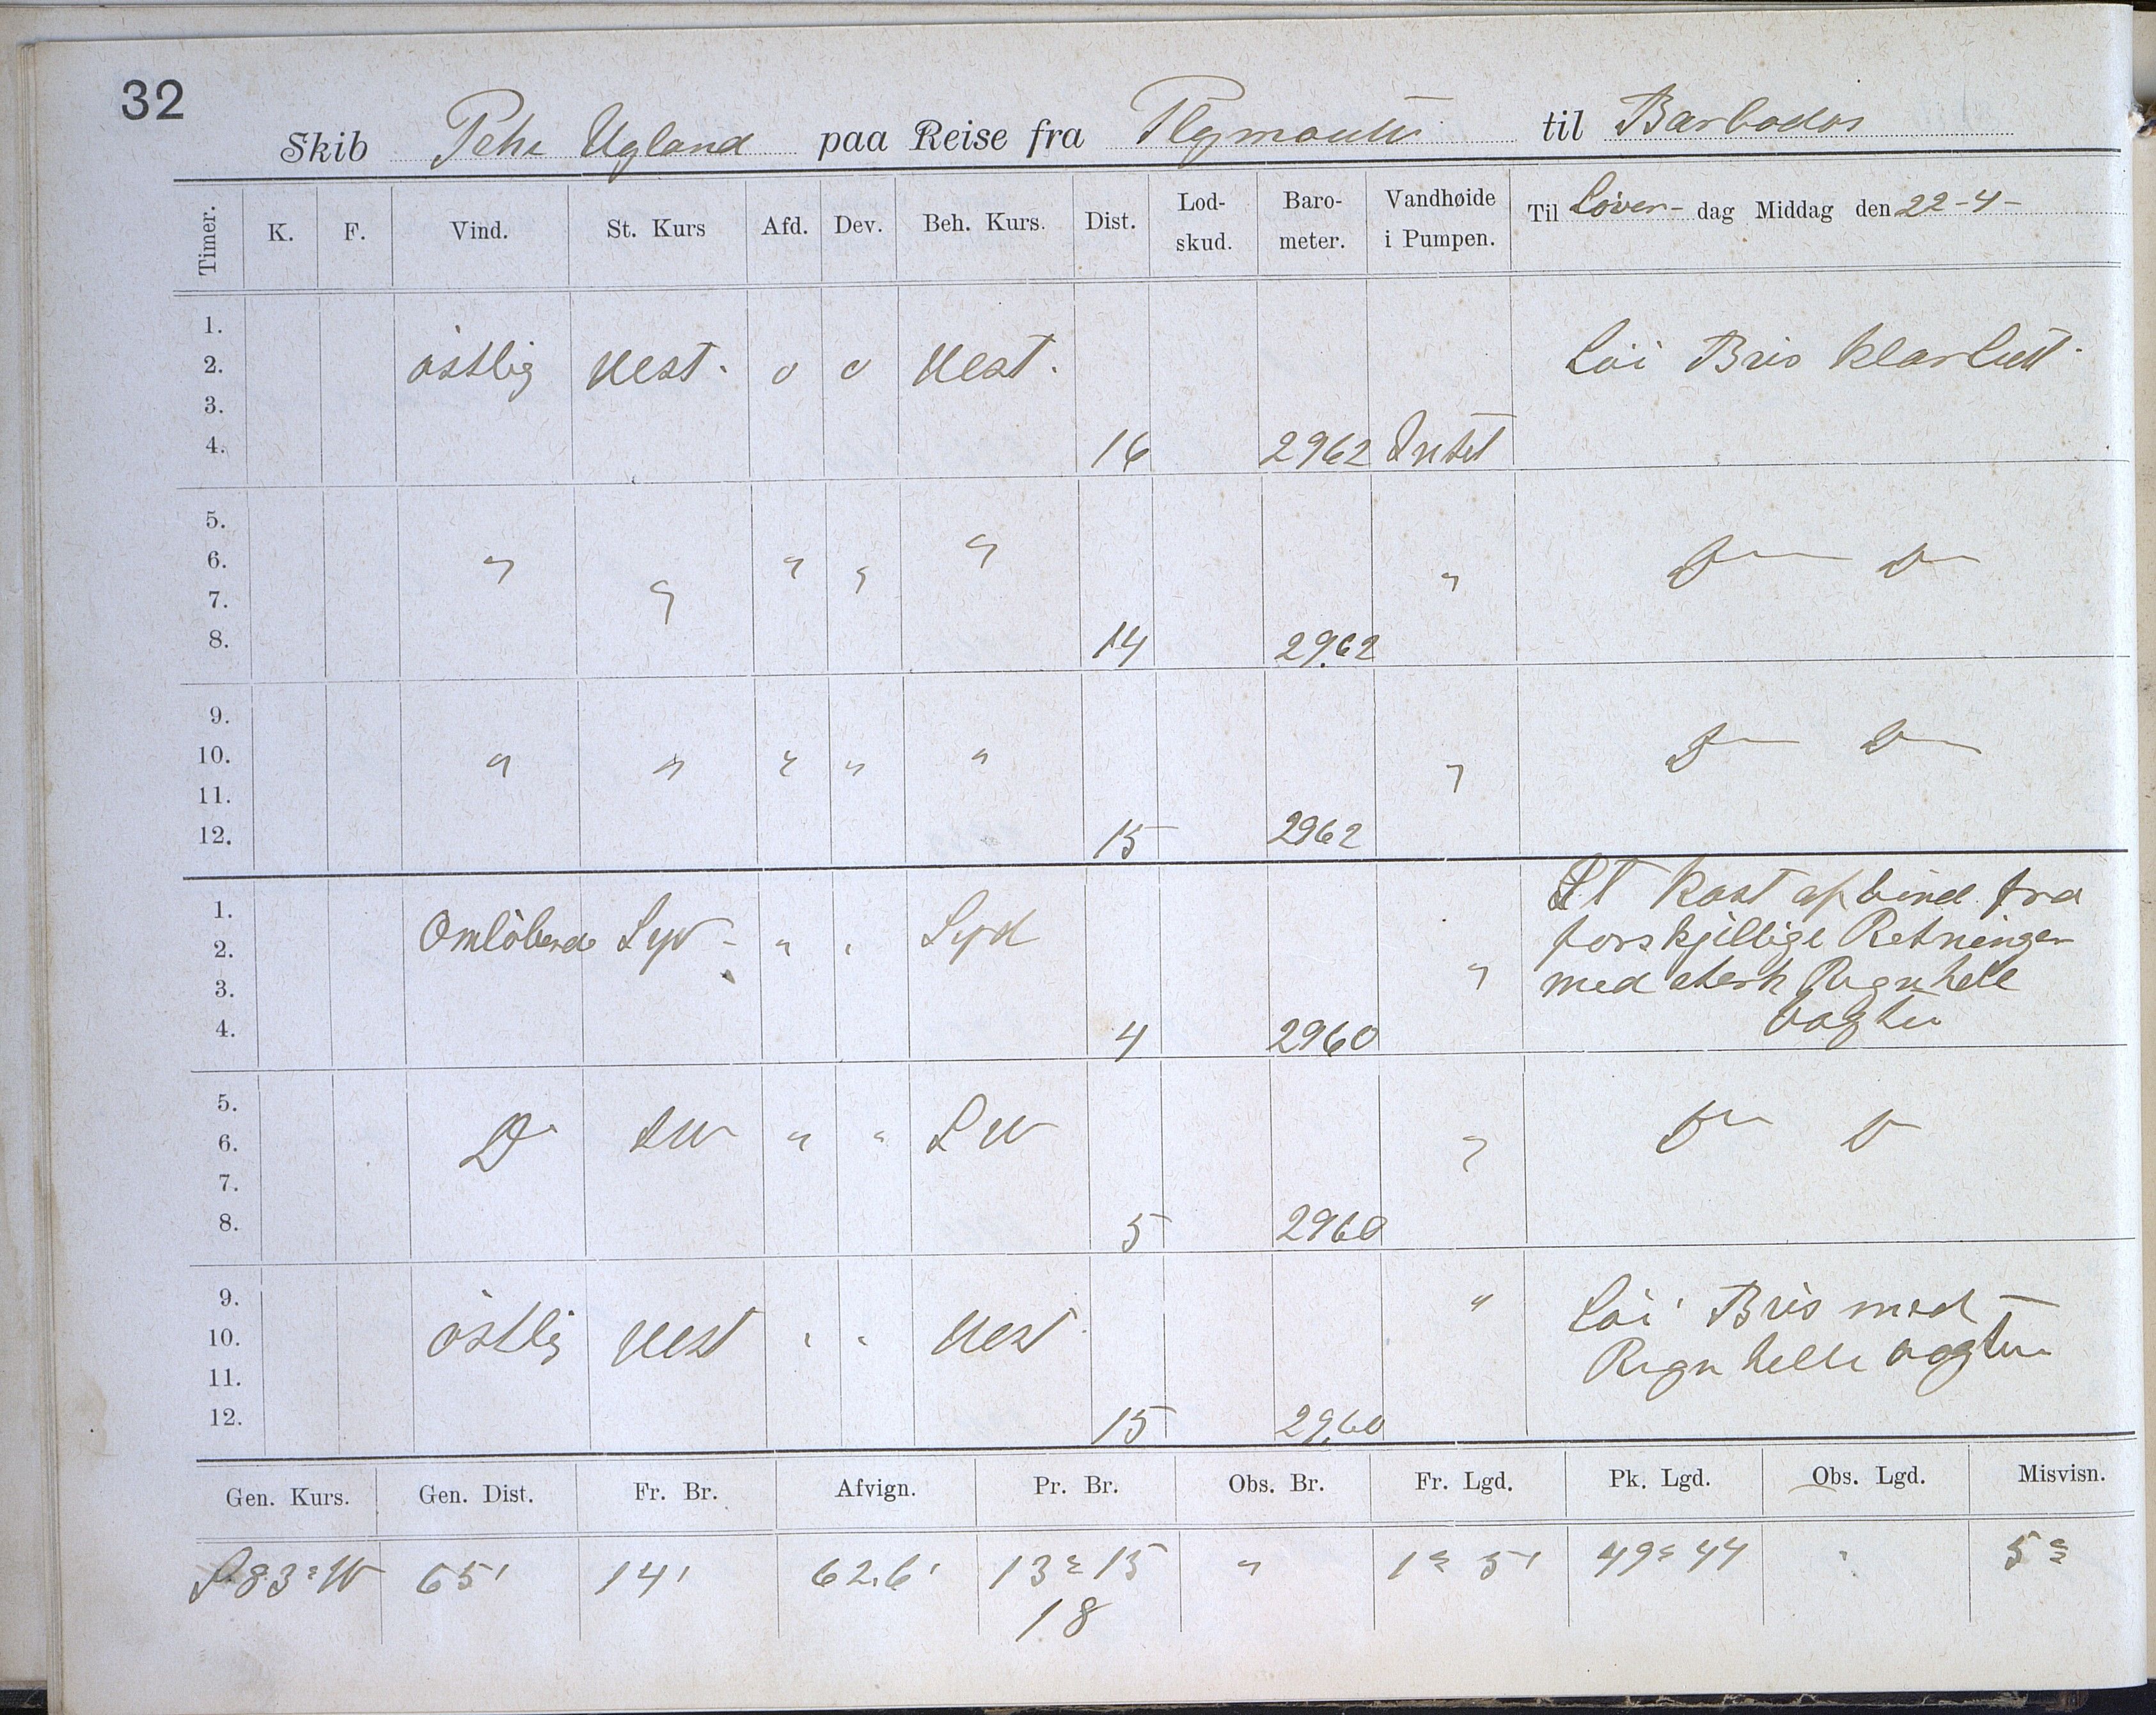 32
Skib Pehr Ugland paa Reise fra Plymouth til Barbados
Timer. K. F. Vind. St. Kurs Afd. Dev. Beh. Kurs. Dist. Lod-skud. Baro-meter. Vandhøide i Pumpen. Til Löver- dag Middag den 22-4-
1.
2. östlig Vest. 0 0 Vest. Löi Bris Klarluft
3.
4. 16 2962 Intet
5.
6. " " " " " " Do Do
7.
8. 14 29.62
9.
10. " " " " " " Do Do
11.
12. 15 2962
1. Et Kast af vind fra
2. Omlöbende Syd - " " Syd forskjellige Retninger
3. " med sterk Regn hele
4. 4 2960 vagten
5.
6. Do SW " " SW " Do Do
7.
8. 5 2960
9. " Löi Bris med
10. östlig Vest " " Vest Regn helle vagten
11.
12. 15 29.60
Gen. Kurs. Gen. Dist. Fr. Br. Afvign. Pr. Br. Obs. Br. Fr. Lgd. Pk. Lgd. Obs. Lgd. Misvisn.
S 83° W 65' 14' 62.6' 13° 15 " 1° 5' 49° 44 " 5°
18